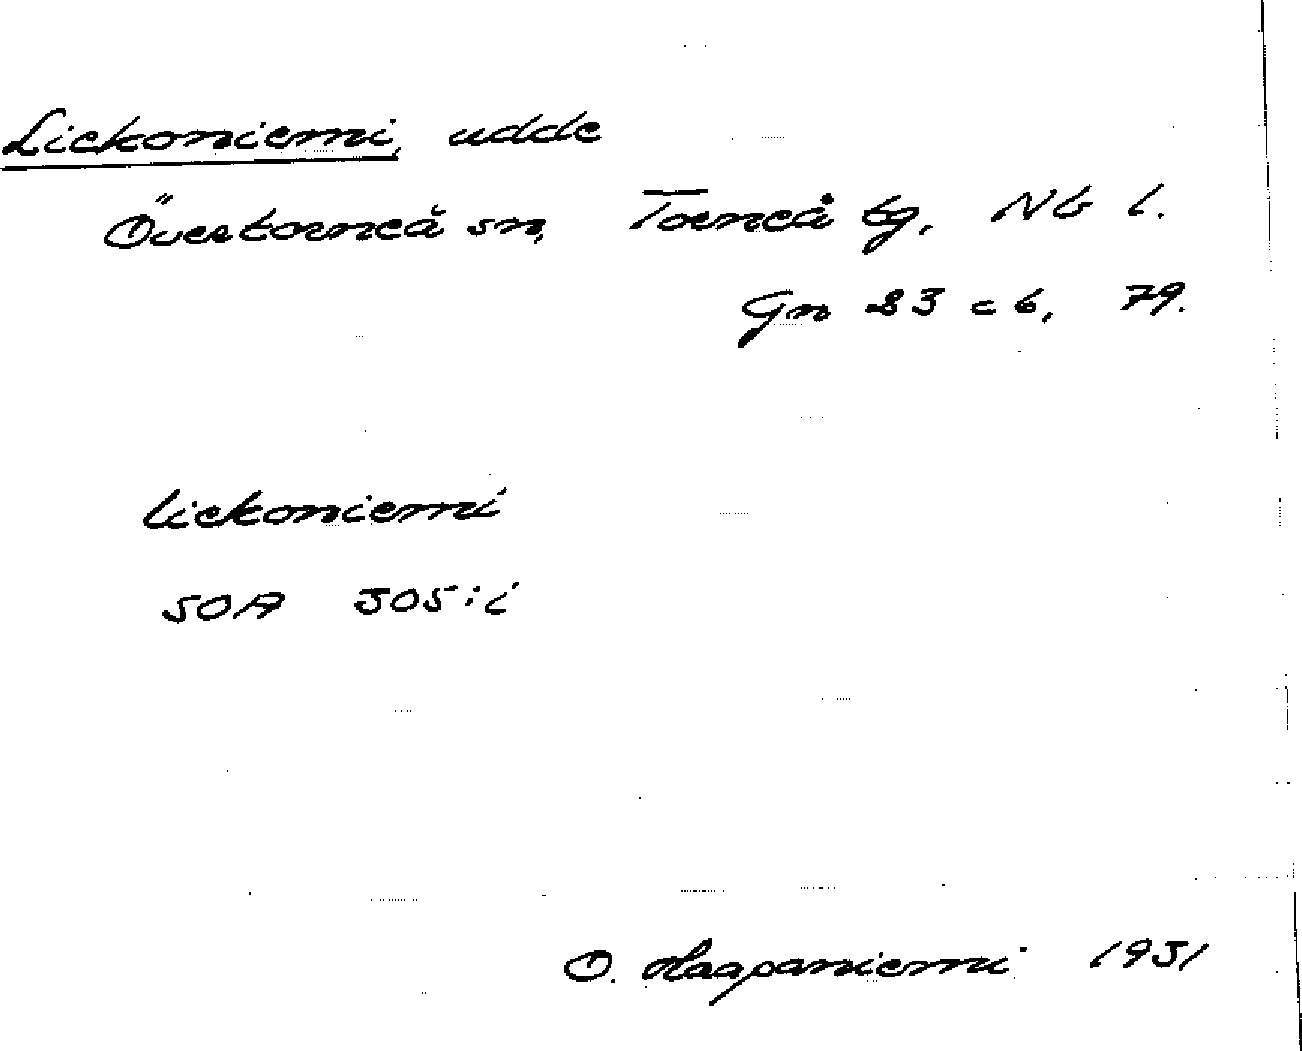 Liekoniemi, udde
Övertorneå sn, Torneå tg, Nb l.
Gn 23 c 6, 79.
liekoniemi
SOA 305:i
O. Haapaniemi 1931